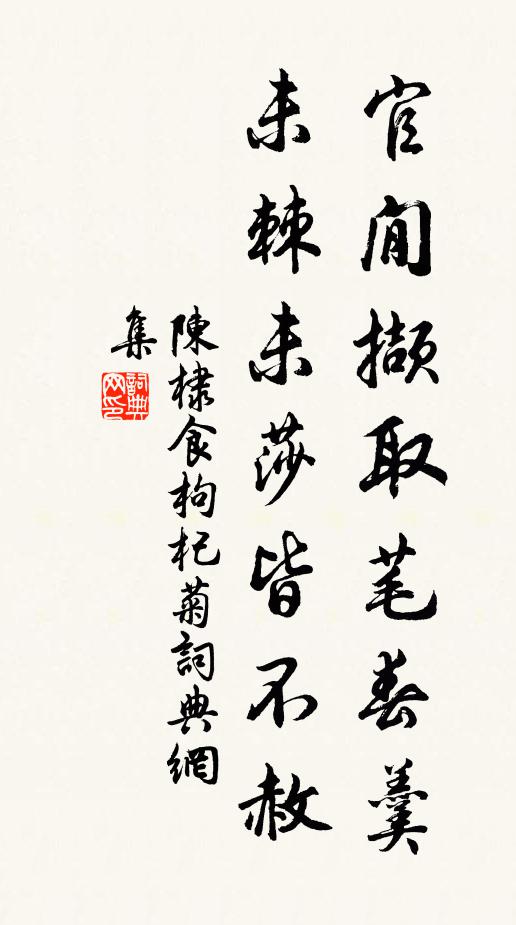 官閒擷取芼春羹
未棘未莎皆不赦
陳棣食枸杞菊詞典網
集
詞典
网印